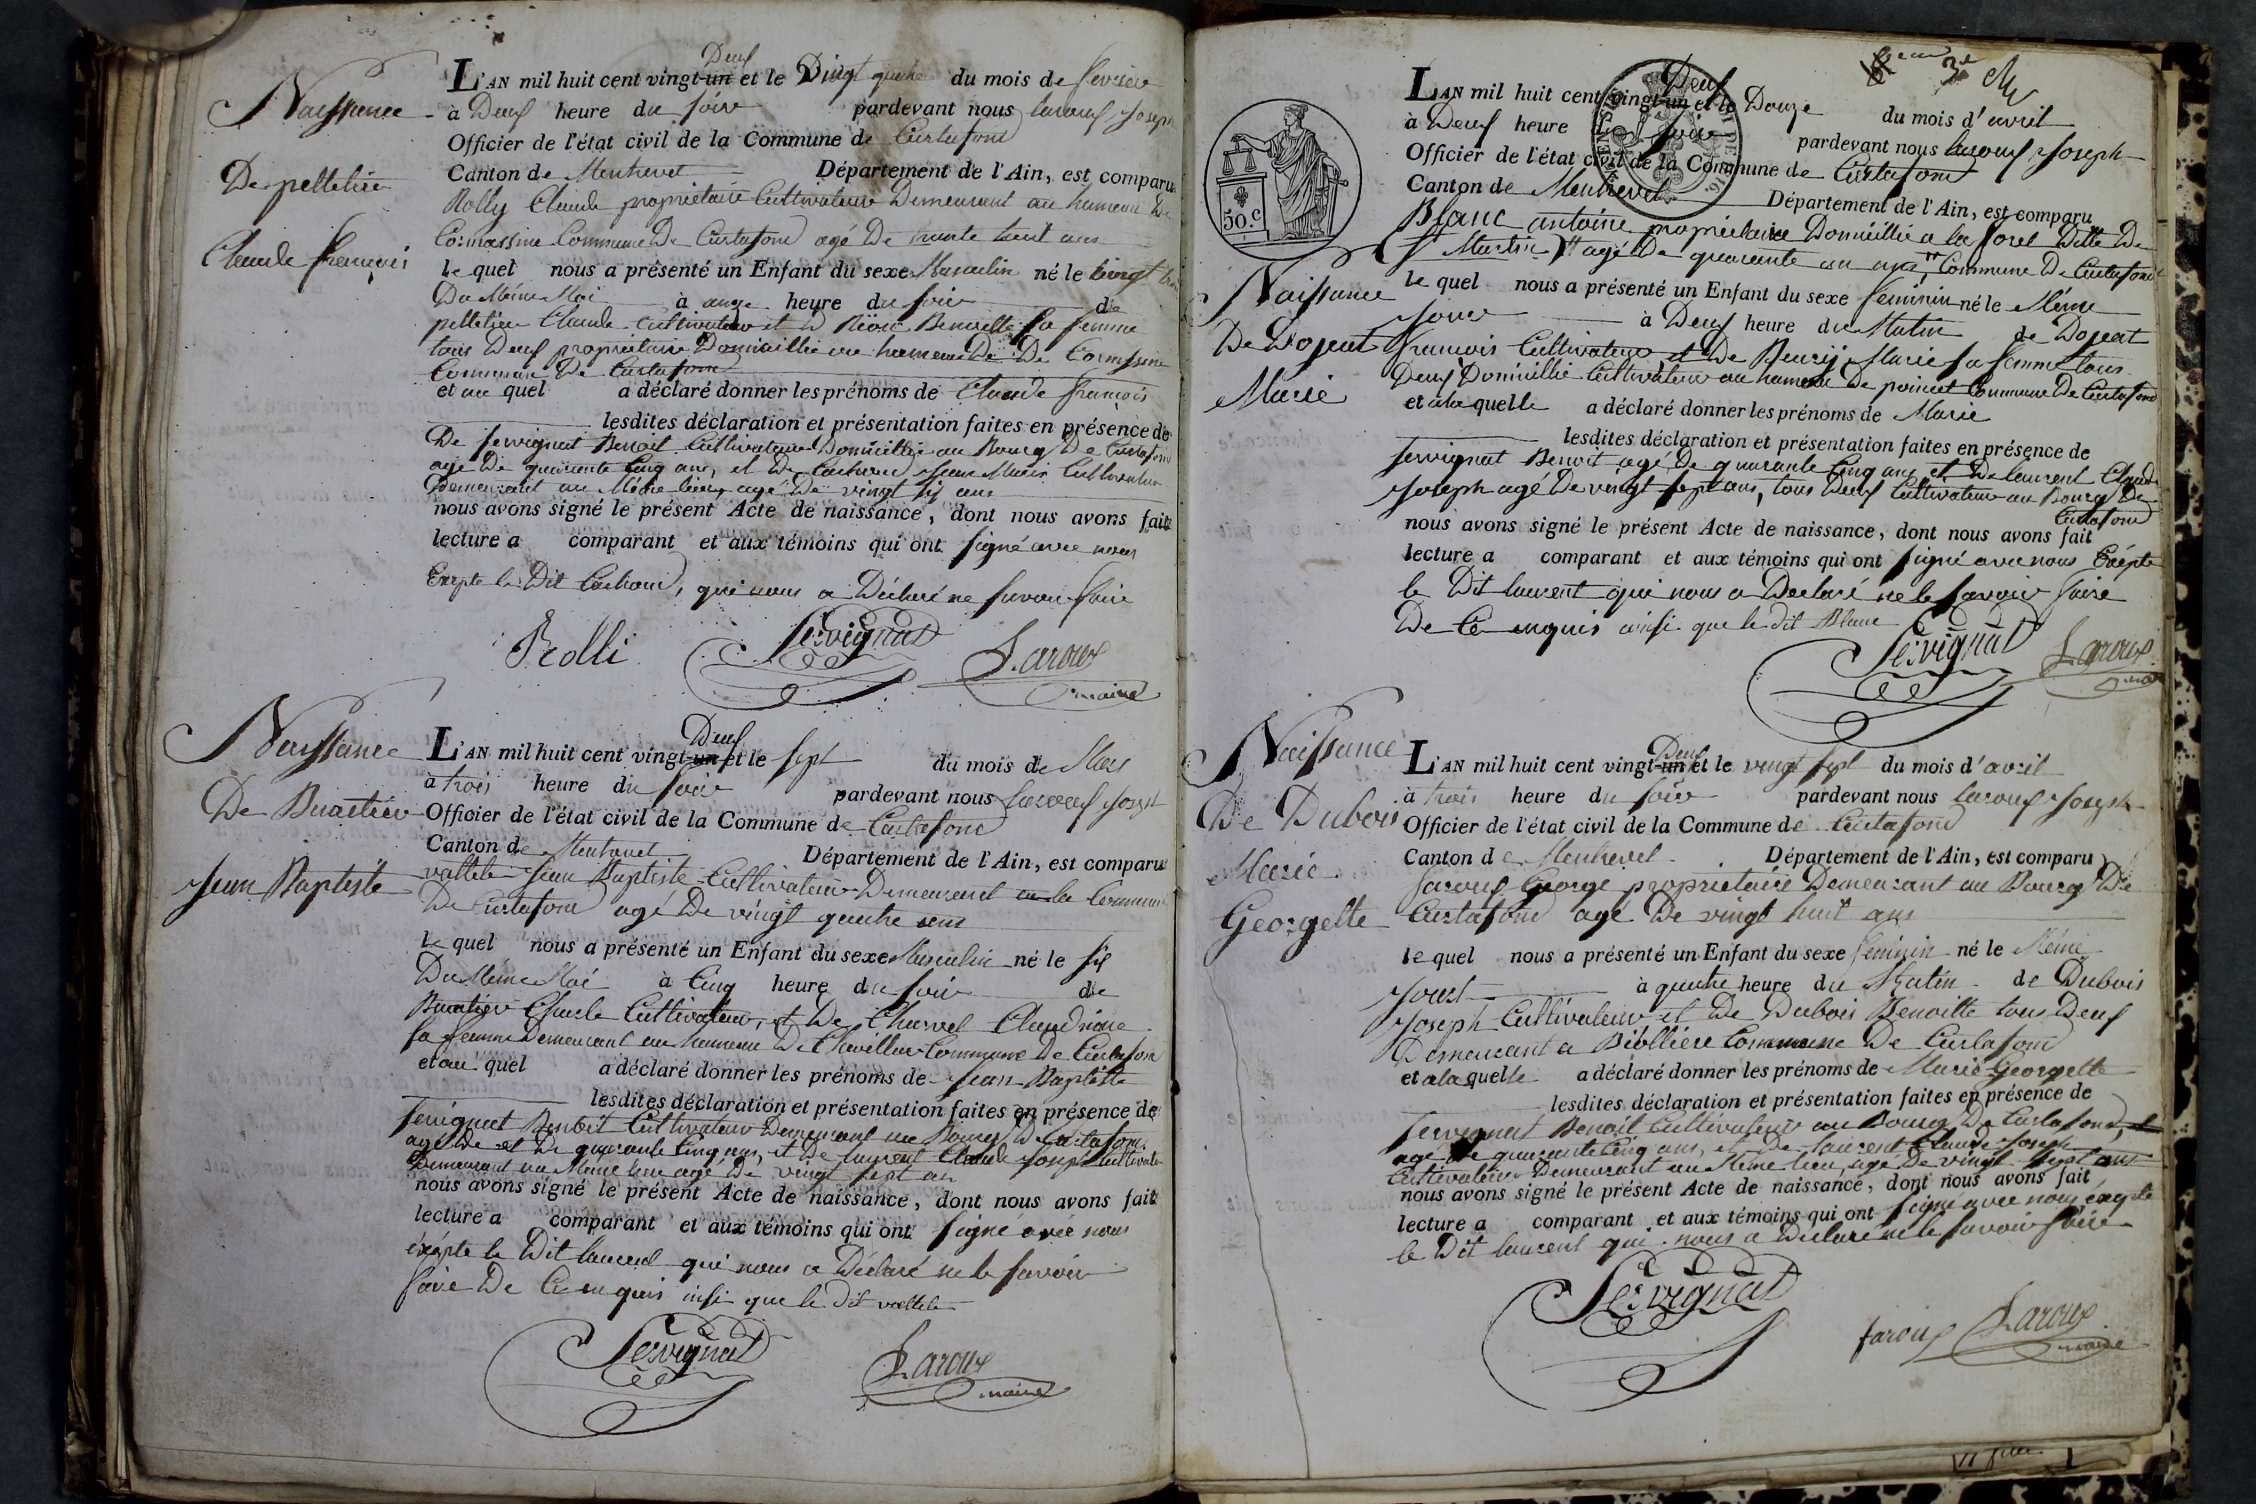 Naissance
De pelletier
Claude françois
Deux
L'AN mil huit cent vingt-un et le Vingt quatre du mois de fevrier
à Deux heure du soir pardevant nous laroux Joseph
Officier de l'état civil de la Commune de Curtafond
Canton de Montrevel Département de l'Ain, est comparu
Rolly Claude propriétaire Cultivateur Demeurant au hameau De
Cormassine Commune De Curtafond agé De trante huit ans
le quel nous a présenté un Enfant du sexe Masculin né le vingt
Du Même Moi à onze heure du soir de
pelletier Claude Cultivateur et D Benoitte sa femme
tous Deux propriétaire Domicillié au hameau De De
Commune De Curtafond
et au quel a déclaré donner les prénoms de Claude françois
lesdites déclaration et présentation faites en présence de
De servignat Benoit Cultivateur Domicillié au Bourg De Curtafond
agé De quarante Cinq ans, et De Jean Marie Cultivateur
Demeurant au Même lieu, agé De vingt six ans
nous avons signé le présent Acte de naissance, dont nous avons fait
lecture a comparant et aux témoins qui ont signé avec nous
Exepte le Dit qui nous a Déclaré ne savoir faire
Rolli Servignat Laroux
maire
Naissance
De Buatier
Jean Baptiste
Deux
L'AN mil huit cent vingt-un et le sept du mois de Mars
à trois heure du soir pardevant nous Laroux Joseph
Officier de l'état civil de la Commune de Curtafond
Canton de Montrevel Département de l'Ain, est comparu
vallele Jean Baptiste Cultivateur Demeurant au la Commune
De Curtafond agé De vingt quatre ans
le quel nous a présenté un Enfant du sexe Masculin né le six
Du Même Moi à Cinq heure du soir de
Buatier Charle Cultivateur, et De Charvet Claudrine
sa femme Demeurant au hameau De Commune De Curtafond
et au quel a déclaré donner les prénoms de Jean Baptiste
lesdites déclaration et présentation faites en présence de
servignat Benoit Cultivateur Demeurant au Bourg De Curtafond
agé De et De quarante Cinq ans, et De laurent Claude Joseph Cultivateur
Demeurant au Même lieu agé De vingt sept an
nous avons signé le présent Acte de naissance, dont nous avons fait
lecture a comparant et aux témoins qui ont signé avec nous
éxépte le Dit laurent qui nous a Déclaré ne le savoir
faire De Ce enquis insi que le dit vallele
Servignat Laroux
maire
50.C
Naissance
De Dojeat
Marie
Deux
L'AN mil huit cent vingt-un et le Douze du mois d'avril
à Deux heure du soir pardevant nous laroux Joseph
Officier de l'état civil de la Commune de Curtafond
Canton de Montrevel Département de l'Ain, est comparu
Blanc antoine propriétaire Domicillié a la foret Ditte De
St Martin agé De quarante un ans, Commune De Curtafond
le quel nous a présenté un Enfant du sexe feminin né le Même
Jour à Deux heure du Matin de Dojeat
francois Cultivateur et De Marie sa femme tous
Deux Domicillié Cultivateur au hameau De Commune De Curtafond
et a la quelle a déclaré donner les prénoms de Marie
lesdites déclaration et présentation faites en présence de
servignat Benoit agé De quarante Cinq ans et De laurent Claude
Joseph agé De vingt sept ans, tous Deux Cultivateur au Bourg De
Curtafond
nous avons signé le présent Acte de naissance, dont nous avons fait
lecture a comparant et aux témoins qui ont signé avec nous Exépte
le Dit laurent qui nous a Declaré ne le savoir faire
De Ce enquis ainsi que le dit Blanc
Servignat Laroux
Naissance
De Dubois
Marie
Georgette
Deux
L'AN mil huit cent vingt-un et le vingt sept du mois d'avril
à trois heure du soir pardevant nous laroux Joseph
Officier de l'état civil de la Commune de Curtafond
Canton de Montrevel Département de l'Ain, est comparu
faroux George propriétaire Demeurant au Bourg De
Curtafond agé De vingt huit ans
le quel nous a présenté un Enfant du sexe feminin né le Même
Jour à quatre heure du Matin de Dubois
Joseph Cultivateur et De Dubois Benoitte tous Deux
Demeurant a Biolliére Commune De Curtafond
et a la quelle a déclaré donner les prénoms de Marie Georgette
lesdites déclaration et présentation faites en présence de
servignat Benoit Cultivateur au Bourg De Curtafond, et
agé De quarante Cinq ans, et De laurent Claude Joseph
Cultivateur Demeurant au Même lieu, agé De vingt sept ans
nous avons signé le présent Acte de naissance, dont nous avons fait
lecture a comparant et aux témoins qui ont signé avec nous éxepte
le Dit laurent qui nous a Declaré ne le savoir faire
Servignat
faroux Laroux
maire